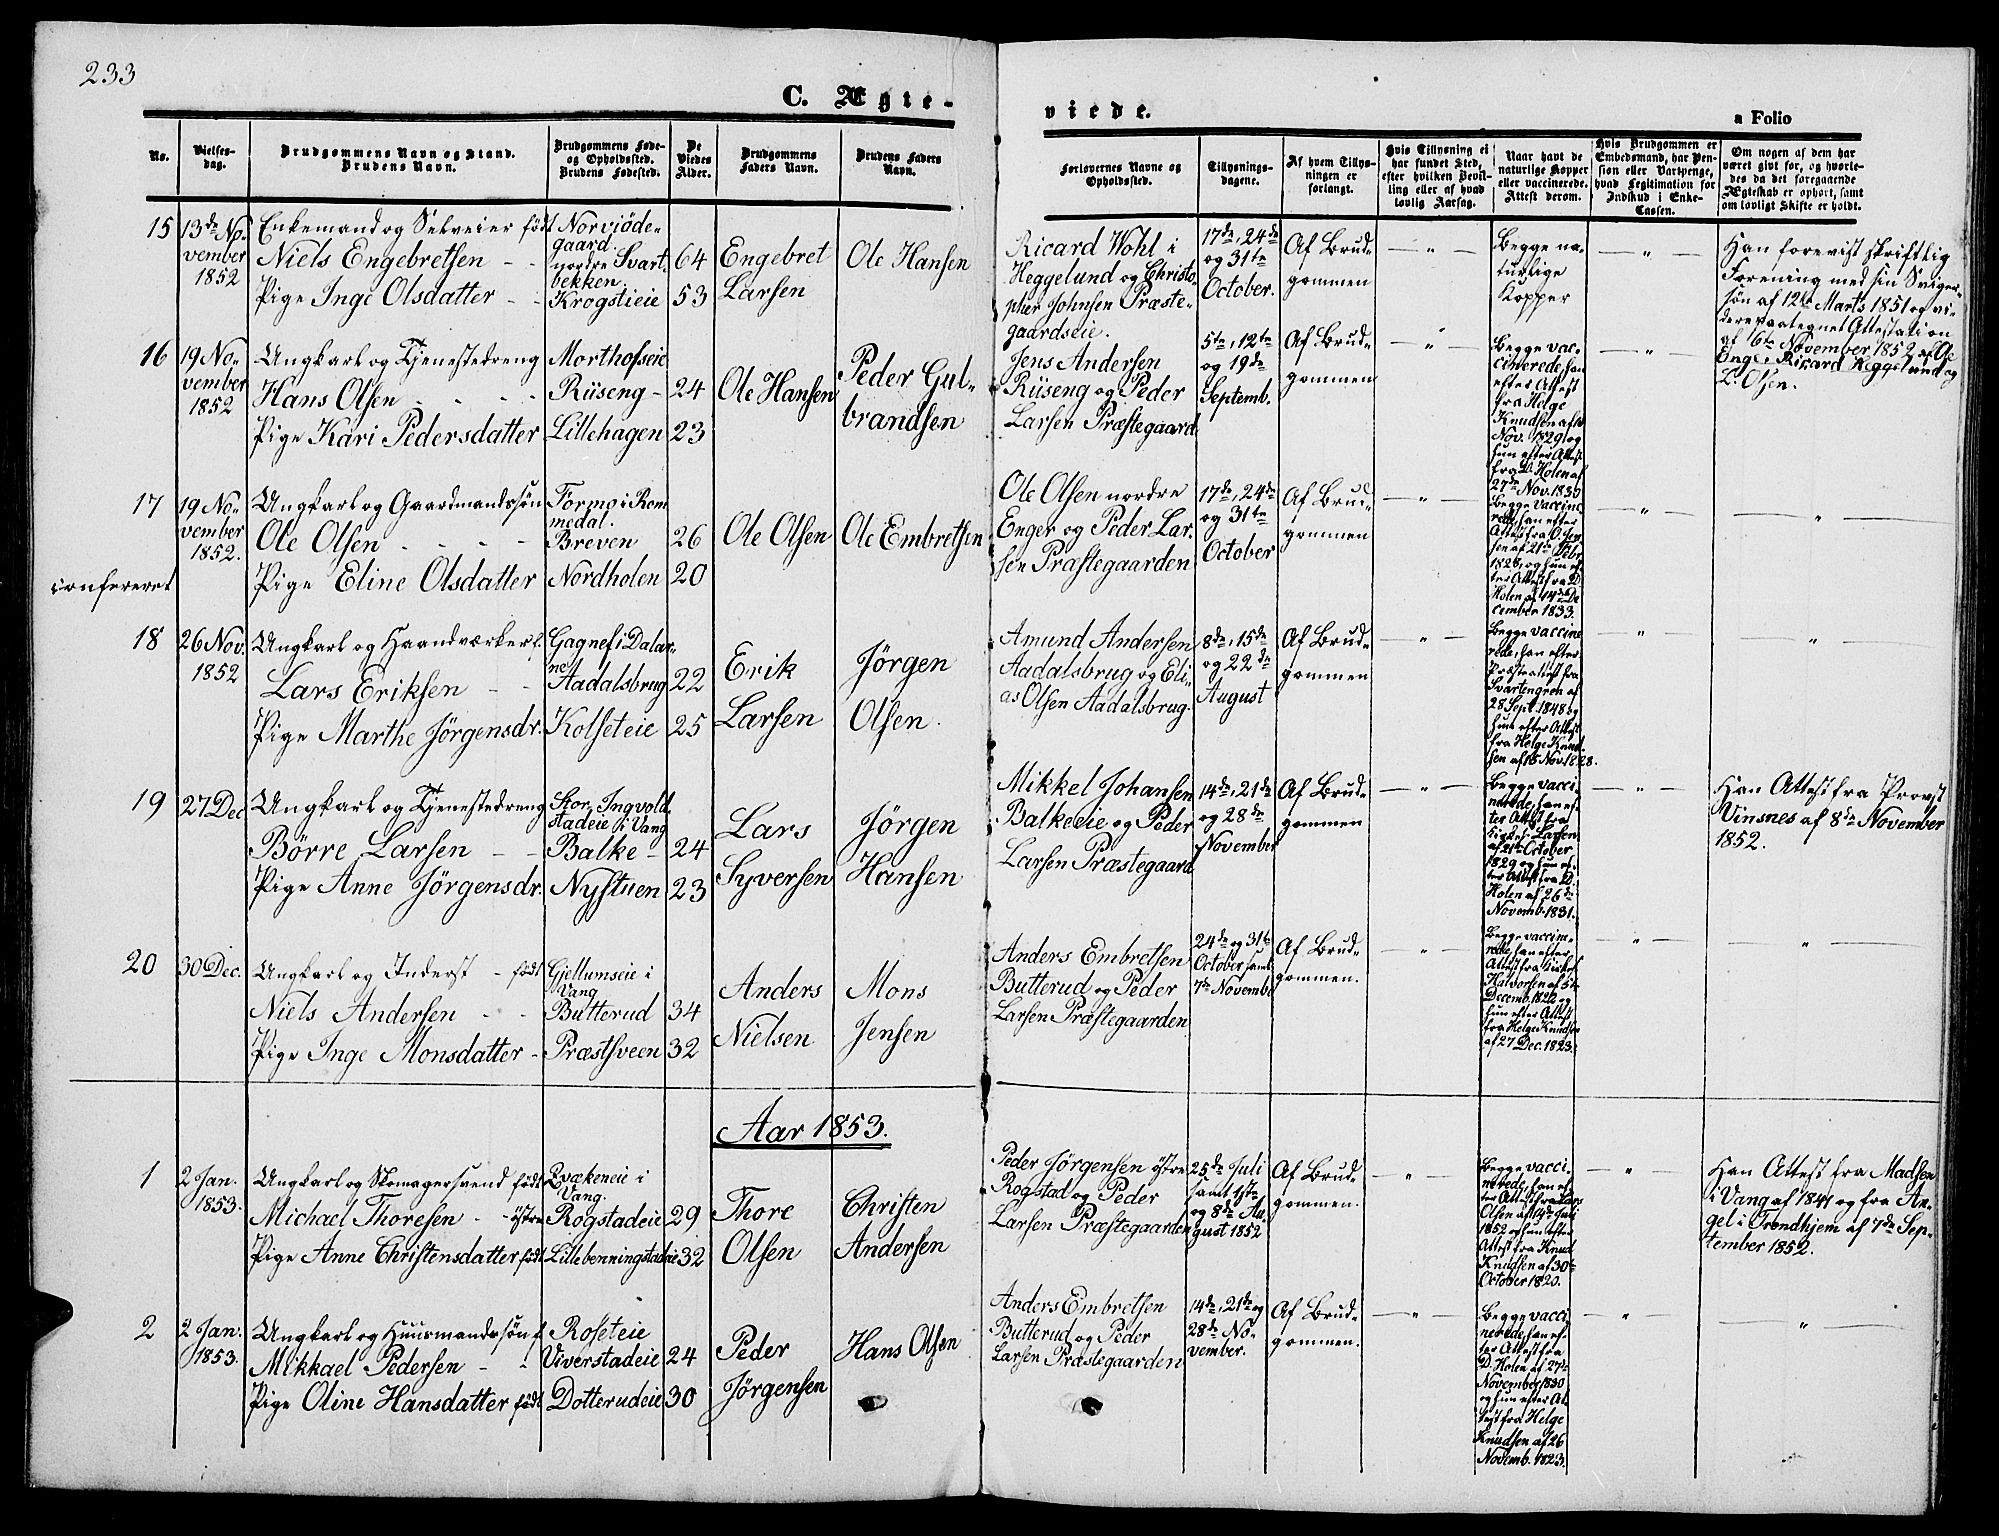 233
C. Ægte-
viede.
a Folio
No.
Vielses-
dag.
Brudgommens Navn og Stand.
Brudens Navn.
Brudgommens Føde-
og Opholdssted.
Brudens Fødested.
De
Viedes
Alder.
Brudgommens
Faders Navn.
Brudens Faders
Navn.
Forlovernes Navne og
Opholdssted.
Tillysnings-
dagene.
Af hvem Tillys-
ningen er
forlangt.
Hvis Tillysning ei
har fundet Sted,
efter hvilken Bevil-
ling eller af hvad
lovlig Aarsag.
Naar havt de
naturlige Kopper
eller vaccinerede.
Attest derom.
Hvis Brudgommen er
Embedsmand, har Pen-
sion eller Vartpenge,
hvad Legitimation for
Indskud i Enke-
Cassen.
Om nogen af dem har
været givt før, og hvorle-
des da det foregaaende
Ægteskab er ophørt, samt
om lovligt Skifte er holdt.
15
13de No-
vember
1852
Enkemand og Selveier født
Niels Engebretsen - -
Pige Inge Olsdatter - -
Norviøde-
gaard.
nordre Svart-
bekken.
Krogstieie
64
53
Engebret
Larsen
Ole Hansen
Ricard Wohl i
Heggelund og Christo-
pher Johnsen Præste-
gaardseie.
17de, 24de
og 31te
October.
Af Brud-
gommen
— " —
Begge na-
turlige
Kopper
— " —
Han forevist skriftlig
Forening med sin Sviger-
søn af 12te Marts 1851 og vi-
dere paategnet Attestation
af 6te November 1852 af Ole
Inge, Ricard Heggelund og
L. Olsen.
16
19 No-
vember
1852
Ungkarl og Tjenestedreng
Hans Olsen - - - -
Pige Kari Pedersdatter
Morthofseie
Riiseng -
Lillehagen
24
23
Ole Hansen
Peder Gul-
brandsen
Jens Andersen
Riiseng og Peder
Larsen Præstegaard
5te, 12te
og 19de
Septemb.
Af Brud-
gommen
— " —
Begge vac-
cinerede, han
efter Attest
fra Helge
Knudsen af 10
Nov. 1829 og
hun efter Attest
fra D. Holen af
27de Nov. 1830
— " —
17
19 No-
vember
1852.
Ungkarl og Gaardmandssøn
Ole Olsen - - - -
Pige Eline Olsdatter
Formo i Rom-
medal.
Breven
Nordholen
26
20
Ole Olsen
Ole Embretsen
Ole Olsen nordre
Enger og Peder Lar-
sen Præstegaarden
17de, 24de
og 31te
October
Af Brud-
gommen
— " —
Begge vaccine-
rede, han efter
Attest fra O. Jen-
sen af 21de Febr
1826, og hun ef-
ter Attest fra D
Holen af 14de De
cember 1833.
— " —
— " —
confereret
18
26 Nov.
1852
Ungkarl og Haandværker f.
Lars Eriksen - -
Pige Marthe Jørgensdr.
Gagnef i Dalar-
ne
Aadalsbrug
Kolseteie
22
25
Erik
Larsen
Jørgen
Olsen.
Amund Andersen
Aadalsbrug og Eli-
as Olsen Aadalsbrug.
8de, 15de
og 22de
August
Af Brud-
gommen
— " —
Begge vaccine
rede, han efter
Præsteattest fra
Svartengren af
28 Sept. 1848 og
hun efter Attest
fra Helge Knud-
sen af 15 Nov. 1828.
— " —
— " —
19
27 Dec
Ungkarl og Tjenestedreng
Børre Larsen - -
Pige Anne Jørgensdr.
Stor Ingvold-
stadeie i Vang
Balke -
Nystuen
24
23
Lars
Syversen
Jørgen
Hansen
Mikkel Johansen
Balkeeie og Peder
Larsen Præstegaard
14de, 21de
og 28de
November
Af Brud-
gommen
— " —
Begge vacci-
nerede, han ef-
ter Attest fra
Kirkes. Larsen
af 21de October
1829 og hun ef-
ter Attest fra D.
Holen af 26de
Novemb. 1831.
— " —
Han Attest fra Provst
Vinsnes af 8de November
1852.
20
30 Dec.
Ungkarl og Inderst - født
Niels Andersen - -
Pige Inge Monsdatter -
Gjellumseie i
Vang
Butterud
Præstsveen
34
32
Anders
Nielsen
Mons
Jensen
Anders Embretsen
Butterud og Peder
Larsen Præstegaarden
24de og 31te
October samt
7de November
Af Brud-
gommen.
— " —
Begge vaccine-
rede, han efter
Attest fra Kirkes.
Halvorsen af 5te
Decemb. 1822 og
hun efter Attest
fra Helge Knudsen
af 27 Dec. 1823.
— " —
— " —
Aar 1853.
1
2 Jan.
1853.
Ungkarl og Skomagersvend født
Michael Thoresen - - østre
Pige Anne Christensdatter født
Qvækeneie i
Vang.
Rogstadeie
Lillebenningstadeie
29
32
Thore
Olsen
Christen
Andersen
Peder Jørgensen østre
Rogstad og Peder
Larsen Præstegaarden
25de Juli
samt 1ste
og 8de Au-
gust 1852
Af Brud-
gommen.
— " —
Begge vacci-
nerede, han ef-
ter Attest fra Lars
Olsen af 14de Juli
1852 og hun efter
Attest fra Knud
Knudsen af 30te
October 1820.
— " —
Han Attest fra Madsen
i Vang af 1847 og fra An-
gel i Trondhjem af 7de Sep-
tember 1852.
2
2 Jan.
1853.
Ungkarl og Huusmandssøn f
Mikkael Pedersen - -
Pige Oline Hansdatter født
Roseteie
Viverstadeie
Dotterudeie
24
30
Peder
Jørgensen
Hans Olsen
Anders Embretsen
Butterud og Peder
Larsen Præstegaarden
14de, 21de og
28de No-
vember.
Af Brud-
gommen.
— " —
Begge vacci
nerede, han ef-
ter Attest fra
D. Holen af 27de
November 1830
og hun efter At-
test fra Helge
Knudsen af 26
Novemb. 1823.
— " —
— " —